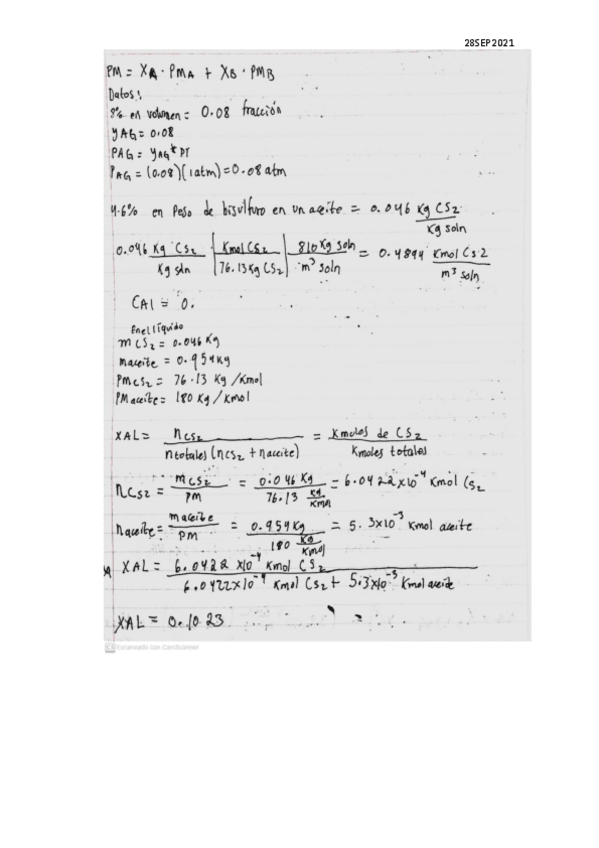 28SEP2021
PM = XA · PMA + XB · PMB
Datos:
8% en volumen = 0.08 fracción
yAG = 0.08
PAG = yAG * PT
PAG = (0.08)(1atm) = 0.08 atm
4.6% en peso de bisulfuro en un aceite = 0.046 Kg CS2 / Kg soln
0.046 Kg CS2 / Kg soln | Kmol CS2 / 76.13 Kg CS2 | 810 Kg soln / m³ soln = 0.4894 Kmol CS2 / m³ soln
CAl = 0.
En el líquido
mCS2 = 0.046 Kg
maceite = 0.954 Kg
PMCS2 = 76.13 Kg/Kmol
PMaceite = 180 Kg/Kmol
XAL = nCS2 / ntotales (nCS2 + naceite) = Kmoles de CS2 / Kmoles totales
nCS2 = mCS2 / PM = 0.046 Kg / 76.13 Kg/Kmol = 6.0422x10⁻⁴ Kmol CS2
naceite = maceite / PM = 0.954 Kg / 180 Kg/Kmol = 5.3x10⁻³ Kmol aceite
XAL = 6.0422x10⁻⁴ Kmol CS2 / 6.0422x10⁻⁴ Kmol CS2 + 5.3x10⁻³ Kmol aceite
XAL = 0.1023 =
Escaneado con CamScanner